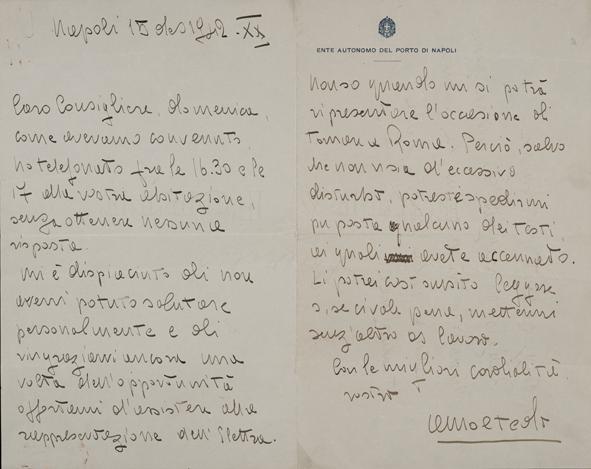 Napoli 15 1942 - XX
Caro Consigliere, domenica,
come avevamo convenuto,
ho telefonato fra le 16.30 e le
17 alla vostra abitazione,
senza ottenere nessuna
risposta.
Mi è dispiaciuto di non
avervi potuto salutare
personalmente e di
ringraziarvi ancora una
volta dell'opportunità
offertami d'assistere alla
rappresentazione dell'Elettra.
ENTE AUTONOMO DEL PORTO DI NAPOLI
Non so quando mi si potrà
ripresentare l'occasione di
tornare a Roma. Perciò, salvo
che non via sia d'eccessivo
disturbo, potreste spedirmi
per posta qualcuno dei testi
ai quali avete accennato.
Li potrei così subito leggere
e, se ci vale pena, mettermi
senz'altro al lavoro.
Con le migliori cordialità
vostro